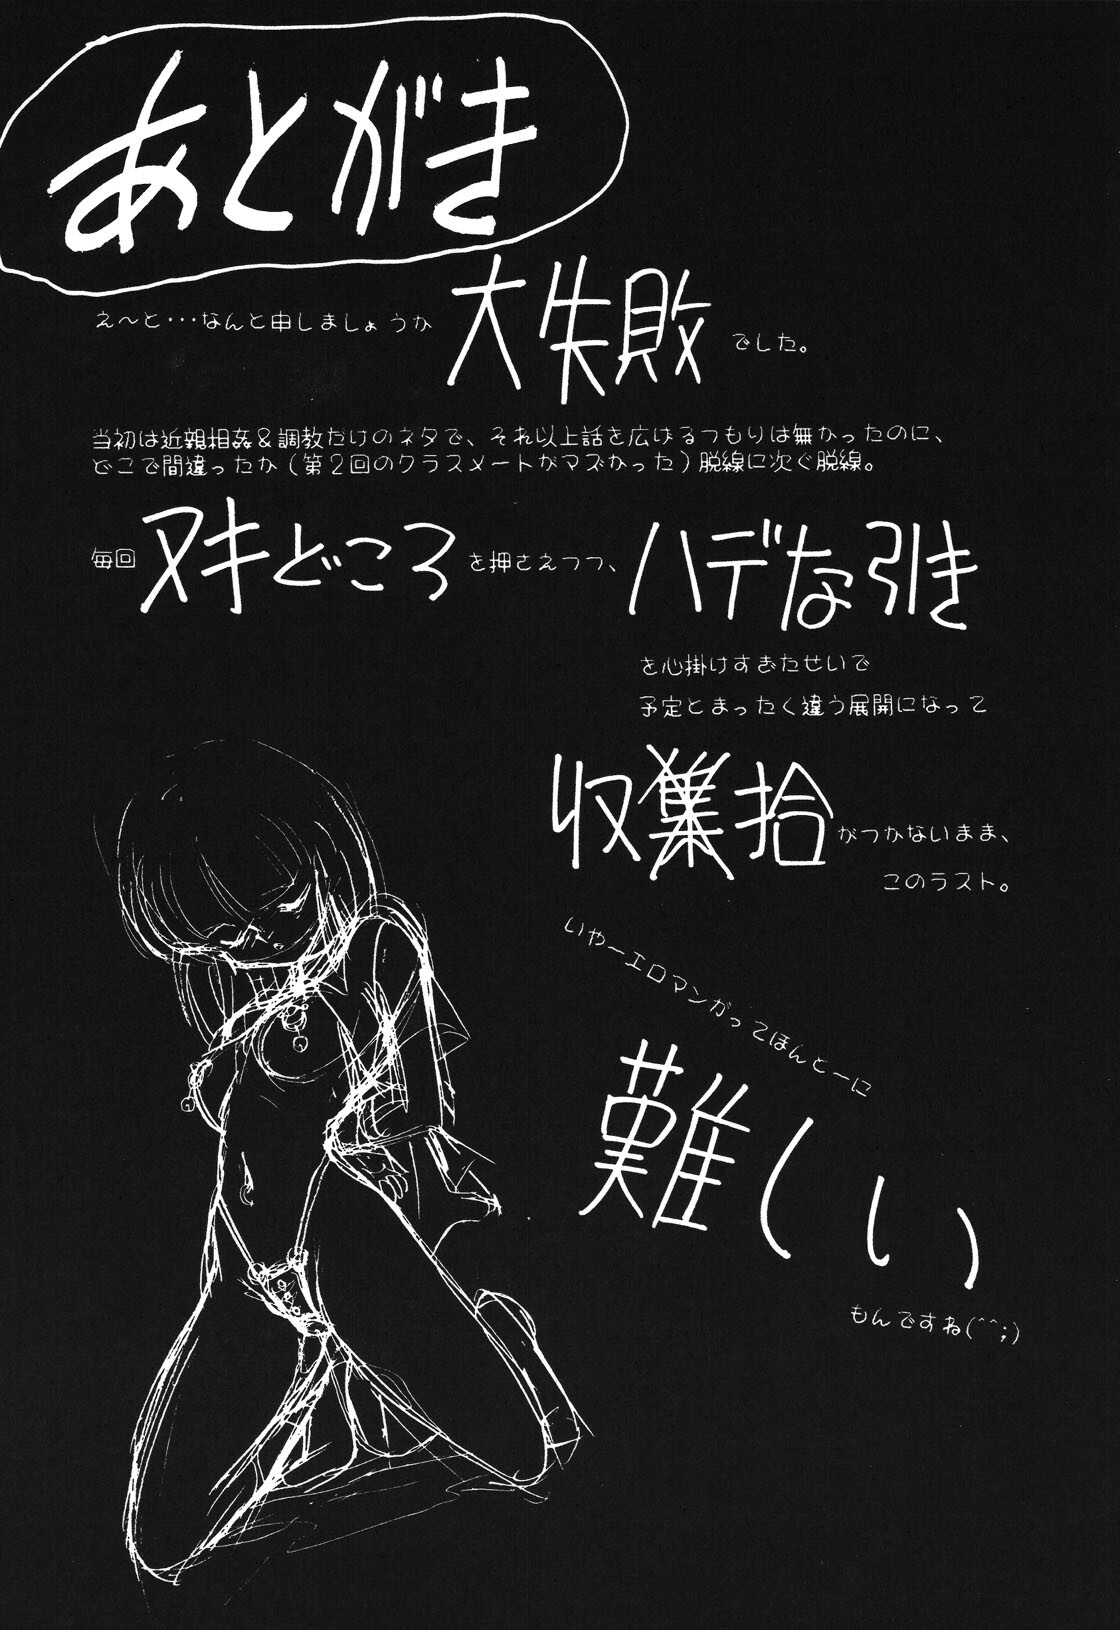 あとがき
え～と・・・なんと申しましょうか大失敗でした。
当初は近親相姦＆調教だけのネタで、それ以上話を広げるつもりは無かったのに、
どこで間違ったか（第２回のクラスメートがマズかった）脱線に次ぐ脱線。
毎回ヌキどころを押さえつつ、ハデな引き
を心掛けすぎたせいで
予定とまったく違う展開になって
収集拾がつかないまま、
このラスト。
いや～エロマンガってほんとーに
難しい
もんですね(^^;)